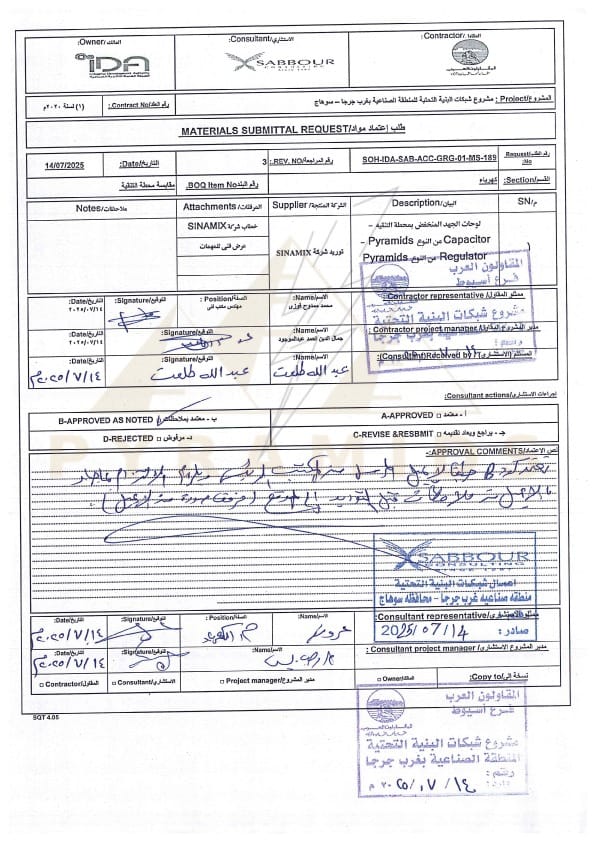 المالك/Owner: الاستشاري/Consultant: المقاول/Contractor:
iDA
SABBOUR
CONSULTING
المقاولون العرب
رقم العقد/Contract No: (١) لسنة ٢٠٢٠م
المشروع/Project: مشروع شبكات البنية التحتية للمنطقة الصناعية بغرب جرجا – سوهاج
طلب إعتماد مواد/MATERIALS SUBMITTAL REQUEST
رقم الطلب/Request No: SOH-IDA-SAB-ACC-GRG-01-MS-189 رقم المراجعة/REV. NO: 3 التاريخ/Date: 14/07/2025
القسم/Section: كهرباء رقم البند/BOQ Item No. مقايسة محطة التنقية
م/SN البيان/Description الشركة المنتجة/Supplier المرفقات/Attachments ملاحظات/Notes
لوحات الجهد المنخفض بمحطة التنقيه –
Capacitor من النوع Pyramids –
Regulator من النوع Pyramids
توريد شركة SINAMIX
خطاب شركة SINAMIX
عرض فنى للمهمات
ممثلو المقاول/Contractor representative الاسم/Name: محمد ممدوح فوزى الصفة/Position: مهندس مكتب فني التوقيع/Signature: التاريخ/Date: ٢٠٢٥/٧/١٤
مدير المشروع المقاول/Contractor project manager الاسم/Name: جمال الدين احمد عبدالموجود التوقيع/Signature: التاريخ/Date: ٢٠٢٥/٧/١٤
المستلم (الاستشاري)/(Consultant)Received by الاسم/Name: عبدالله طلعت التوقيع/Signature: عبدالله طلعت التاريخ/Date: ٢٠٢٥/٧/١٤م
المقاولون العرب
فرع أسيوط
مشروع شبكات البنية التحتية
المنطقة الصناعية بغرب جرجا
اجراءات الاستشاري/Consultant actions:
أ - معتمد □ A-APPROVED ب - معتمد بملاحظات B-APPROVED AS NOTED
جـ - يراجع ويعاد تقديمه □ C-REVISE &RESBMIT د - مرفوض □ D-REJECTED
PYRAMIDS
نص الاعتماد/APPROVAL COMMENTS:
SABBOUR
CONSULTING
اعمال شبكات البنية التحتية
منطقه صناعيه غرب جرجا - محافظه سوهاج
صادر: 2025/07/14
ممثلو الاستشاري/Consultant representative الاسم/Name: الصفة/Position: التوقيع/Signature: التاريخ/Date: ٢٠٢٥/٧/١٤م
مدير المشروع الاستشاري/Consultant project manager الاسم/Name: التوقيع/Signature: التاريخ/Date: ٢٠٢٥/٧/١٤م
نسخة إلى/Copy to: المالك/Owner □ مدير المشروع/Project manager □ الاستشاري/Consultant □ المقاول/Contractor □
SQT 4.05
المقاولون العرب
فرع أسيوط
مشروع شبكات البنية التحتية
المنطقة الصناعية بغرب جرجا
٢٠٢٥/٧/١٤ م